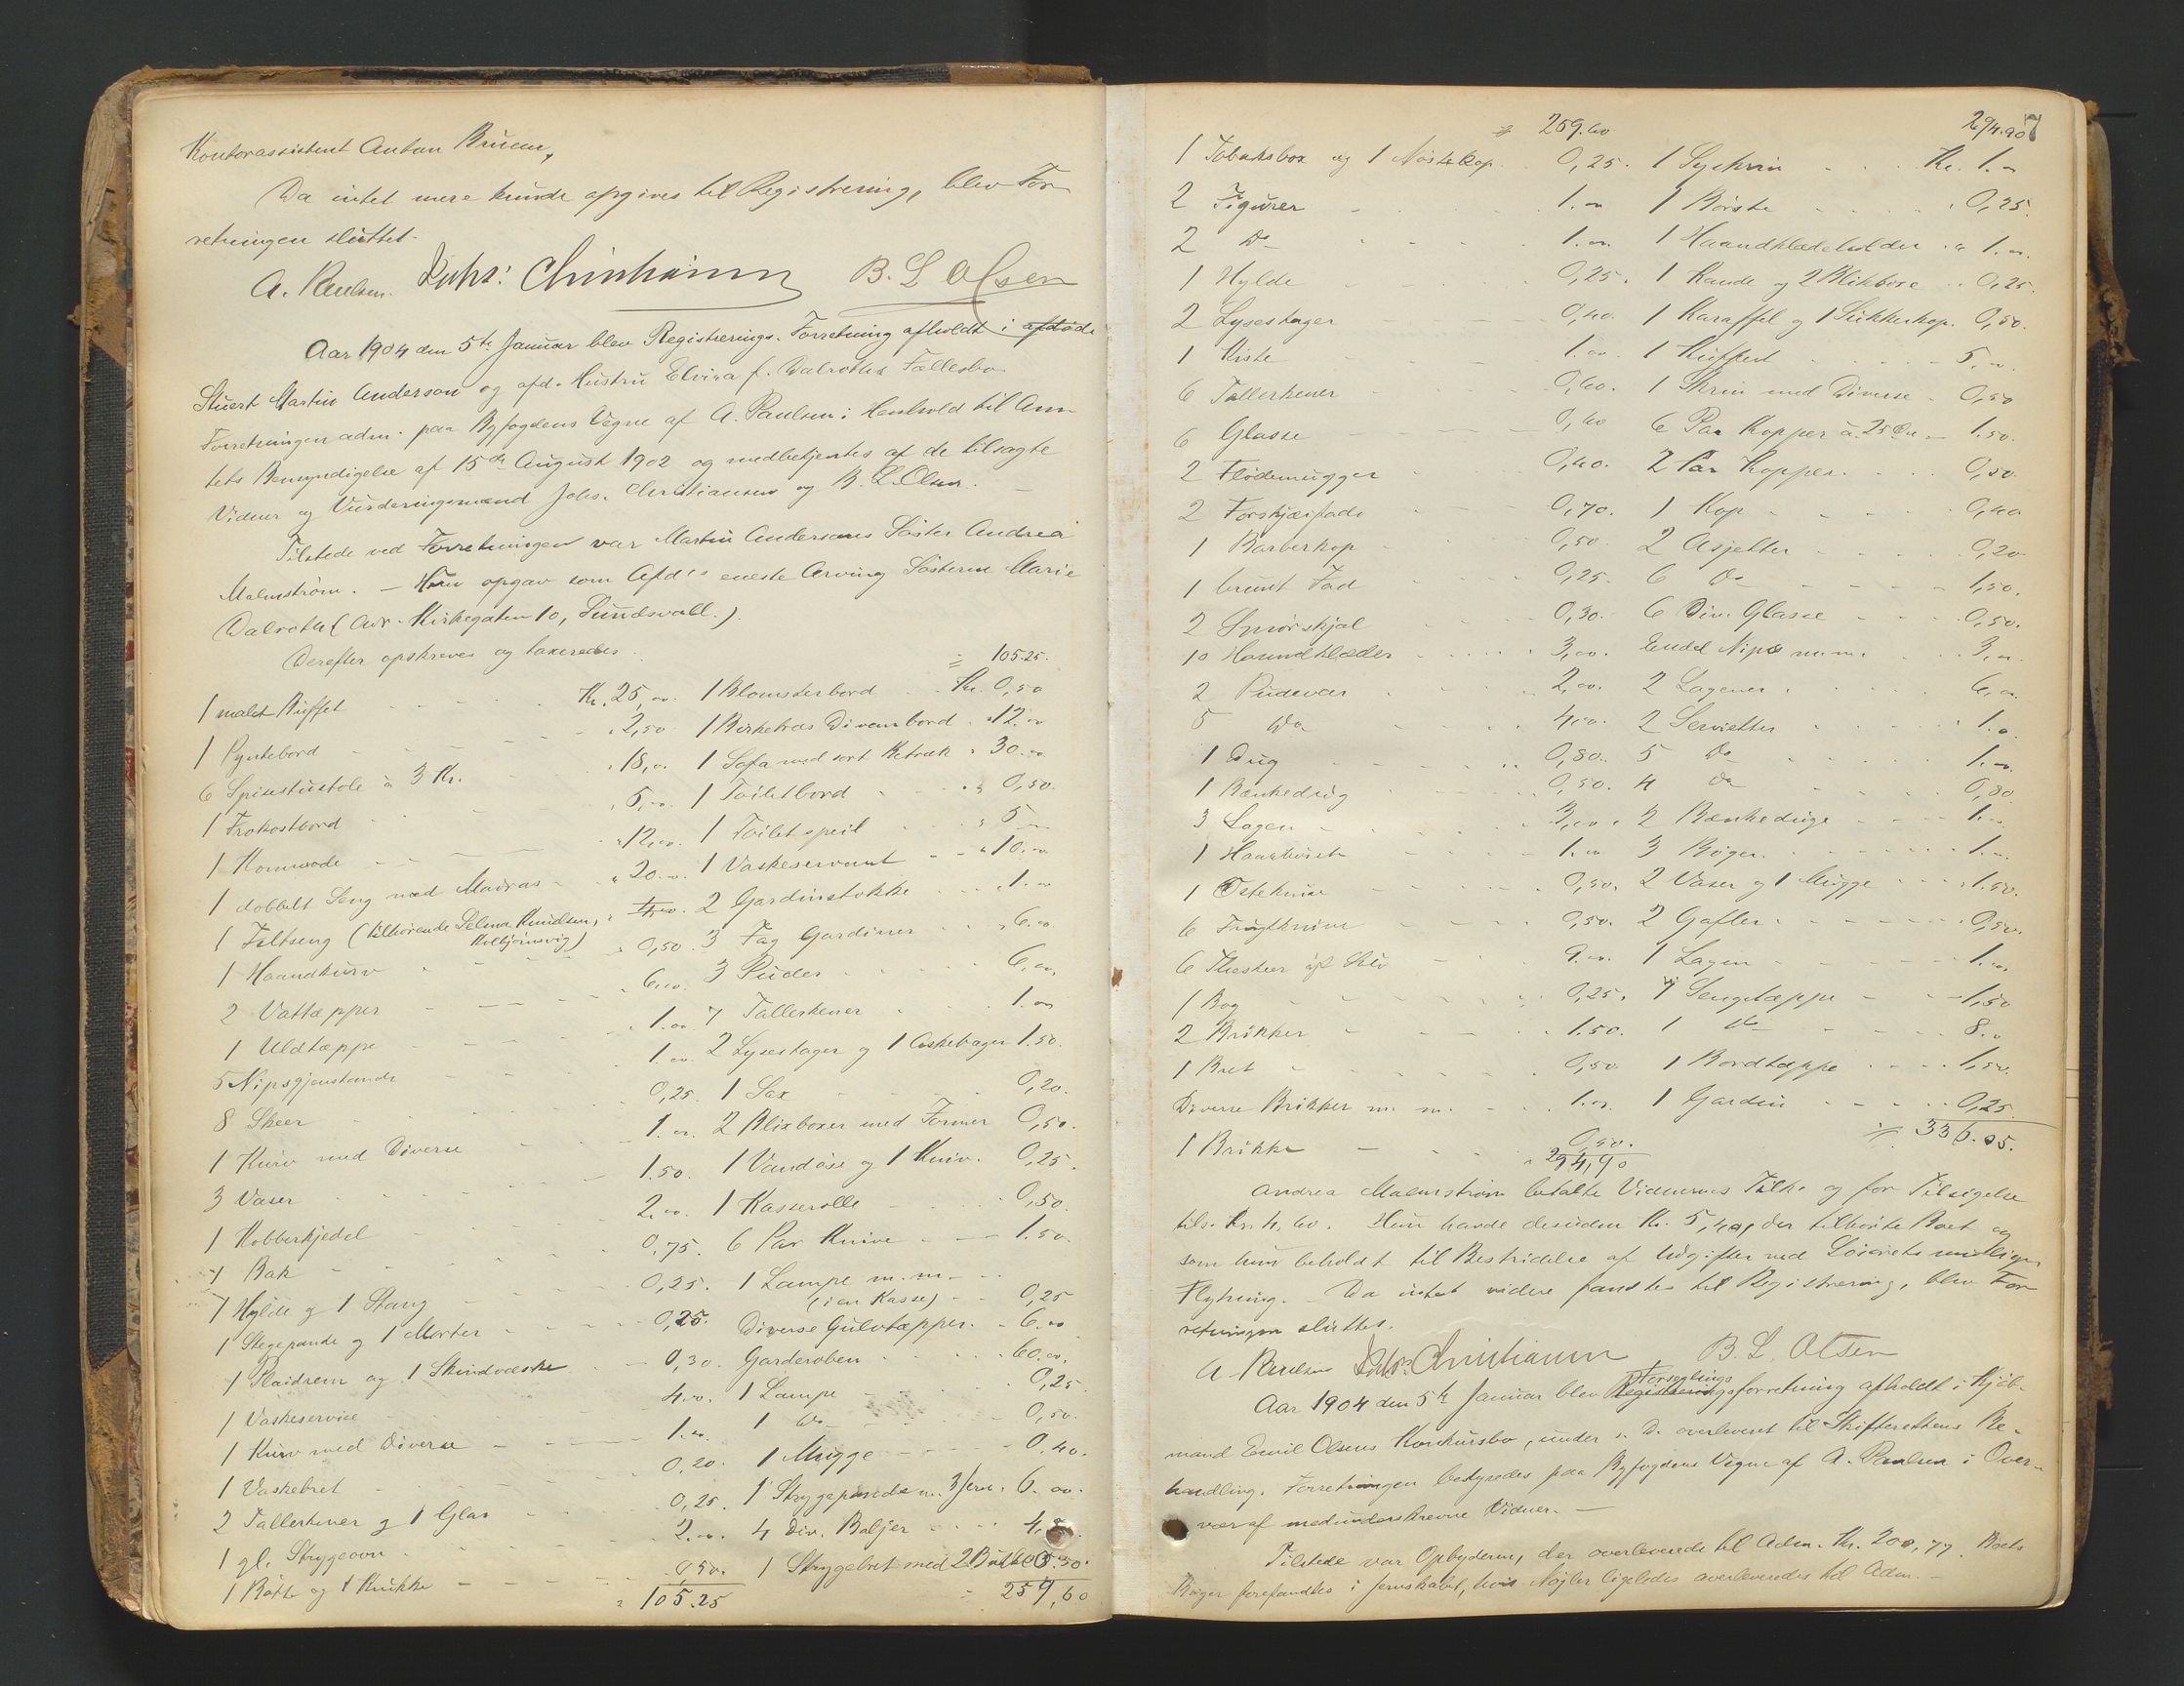 Kontorassistent Anton Bruun,
Da intet mere kunde opgives til Registrering, blev For-
retningen sluttet.
A. Paulsen. Johs: Christiansen B. L. Olsen
Aar 1904 den 5te Januar blev Registrerings-Forretning afholdt i afdøde
Stuert Martin Anderson og afd. Hustru Elvira f. Dalroths Fællesbo.
Forretningen adm. paa Byfogdens Vegne af A. Paulsen i Henhold til Amt-
tets Bemyndigelse af 15de August 1902 og medbetjentes af de tilsagte
Vidner og Vurderingsmænd Johs. Christiansen og B. L. Olsen. —
Tilstede ved Forretningen var Martin Andersons Søster Andrea
Malmström. — Hun opgav som Afd's eneste Arving Søsteren Marie
Dalroth (Adr. Kirkegaten 10, Sundsvall.)
Derefter opskreves og taxeredes
1 malet Buffet Kr. 25,00.
1 Pyntebord " 2,50
6 Spisestuestole à 3 Kr. " 18,00.
1 Frokostbord " 5,00.
1 Kommode " 12,00.
1 dobbelt Seng med Madras " 20.00.
1 Feltseng (tilhørende Selma Knudsen, Kolbjørnsvig)
1 Haandkurv " 0,50.
2 Vattæpper " 6.00.
1 Uldtæppe " 1.00
5 Nipsgjenstande 1.00
8 Skeer 0,25.
1 Kurv med Diverse 1.00.
3 Vaser 1.50.
1 Kobberkjedel 2.00.
1 Bak 0,75.
1 Hylde og 1 Stang 0,25.
1 Stegepande og 1 Morter 0,25.
1 Plaidrem og 1 Skindvæske 0,30.
1 Vaskeservice 4.00.
1 Kurv med Diverse 1.00.
1 Vaskebret 0,20.
2 Tallerkener og 1 Glas 0,25.
1 gl. Strygeovn 2.00.
1 Bøtte og 1 Krukke 0,50.
" 105.25
105.25.
1 Blomsterbord Kr. 0,50
1 Birketræs Divanbord " 12.00
1 Sofa med sort Betræk " 30.00
1 Toiletbord " 0,50.
1 Toiletspeil " 5
1 Vaskeservant " 10.00
2 Gardinstokke " 1.00
3 Fag Gardiner " 6.00
3 Puder 6,00.
7 Tallerkener 1.00
2 Lysestager og 1 Askebæger 1.50.
1 Sax 0,20.
2 Blixboxer med Former 0,50.
1 Vandøse og 1 Kniv. 0,25.
1 Kasserolle 0,50.
6 Par Knive 1.50.
1 Lampe m.m.
(i en Kasse) 0,25
Diverse Gulvtæpper. 6.00
Garderoben 60.00.
1 Lampe 0,25.
1 Do 0,50.
1 Mugge 0.40.
1 Strygepande m. 3 Jern. 6.00.
4 Div. Baljer
1 Strygebret med 2 Bukke
259,60
259.60
1 Tobaksbox og 1 Kop 0,25.
2 Figurer 1.00
2 Do 1.00.
1 Hylde 0,25.
2 Lysestager 0,40.
1 Kiste 1.00.
6 Tallerkener 0,60.
6 Glasse 0,60
2 Flødemugger 0,40.
2 Forskjærfade 0,70.
1 Barberkop 0,50.
1 brunt Fad 0,25.
2 Smørskjæl 0,30.
10 Haandklæder 3,00.
2 Pudevar 2,00.
5 Do 4,00.
1 Dug 0,80.
1 Bænkedug 0,50.
3 Lagen 3,00.
1 Haarbørste 1.00
1 Ostekniv 0,50.
6 Frugtknive 0,50.
6 Theskeer af Sølv 9.00.
1 Bog 0,25.
2 Brikker 1.50.
1 Bret 0,50
Diverse Brikker m. m. 1.00.
1 Brikke 0,50.
" 294,90
294.90
1 Syskrin Kr. 1.00
1 Børste 0,25.
1 Haandklædeholder " 1.00.
1 Kande og 2 Blikboxe 0,25.
1 Karaffel og 1 Sukkerkop. 0,50.
1 Kuffert 5,00.
1 Skrin med Diverse 0,50
6 Par Kopper à 25 Øre 1.50.
2 Par Kopper 0,50.
1 Kop 0,40
2 Asjetter 0,20
6 Do 1,50.
6 Div. Glasse 0,50.
Endel Nips m.m. 3,00.
2 Lagener 6,00.
2 Servietter 1.00
5 Do 1.00.
4 Do 0,80
2 Bænkeduge 1.00
3 Bøger 1.00.
2 Vaser og 1 Mugge 1.50.
2 Gafler 0,50.
1 Lagen 1.00,
1 Sengetæppe 1,50
1 Do 8.00
1 Bordtæppe 1,50.
1 Gardin 0,25.
336.05.
Andrea Malmström betalte Vidnernes Tilk. og for Tilsigelse
tils. Kr. 4.60. Hun havde desuden Kr. 5,40, der tilhørte Boet og
som hun beholdt til Bestridelse af Udgifter ved Løsørets
Flytning. – Da intet videre fandtes til Registrering, blev For-
retningen sluttet.
A Paulsen Johs: Christiansen B. L. Olsen
Aar 1904 den 5te Januar blev Forseglings Registreringsforretning afholdt i Kjøb-
mand Emil Olsens Konkursbo, under s. D. overleveret til Skifterettens Be-
handling. Forretningen bestyredes paa Byfogdens Vegne af A. Paulsen i Over-
vær af medunderskrevne Vidner. —
Tilstede var Opbyderen, der overleverede til Adm. Kr. 200,77. Boets
Bøger forefandtes i Jernskabet, hvis Nøgler ligeledes overleveredes til Adm. —